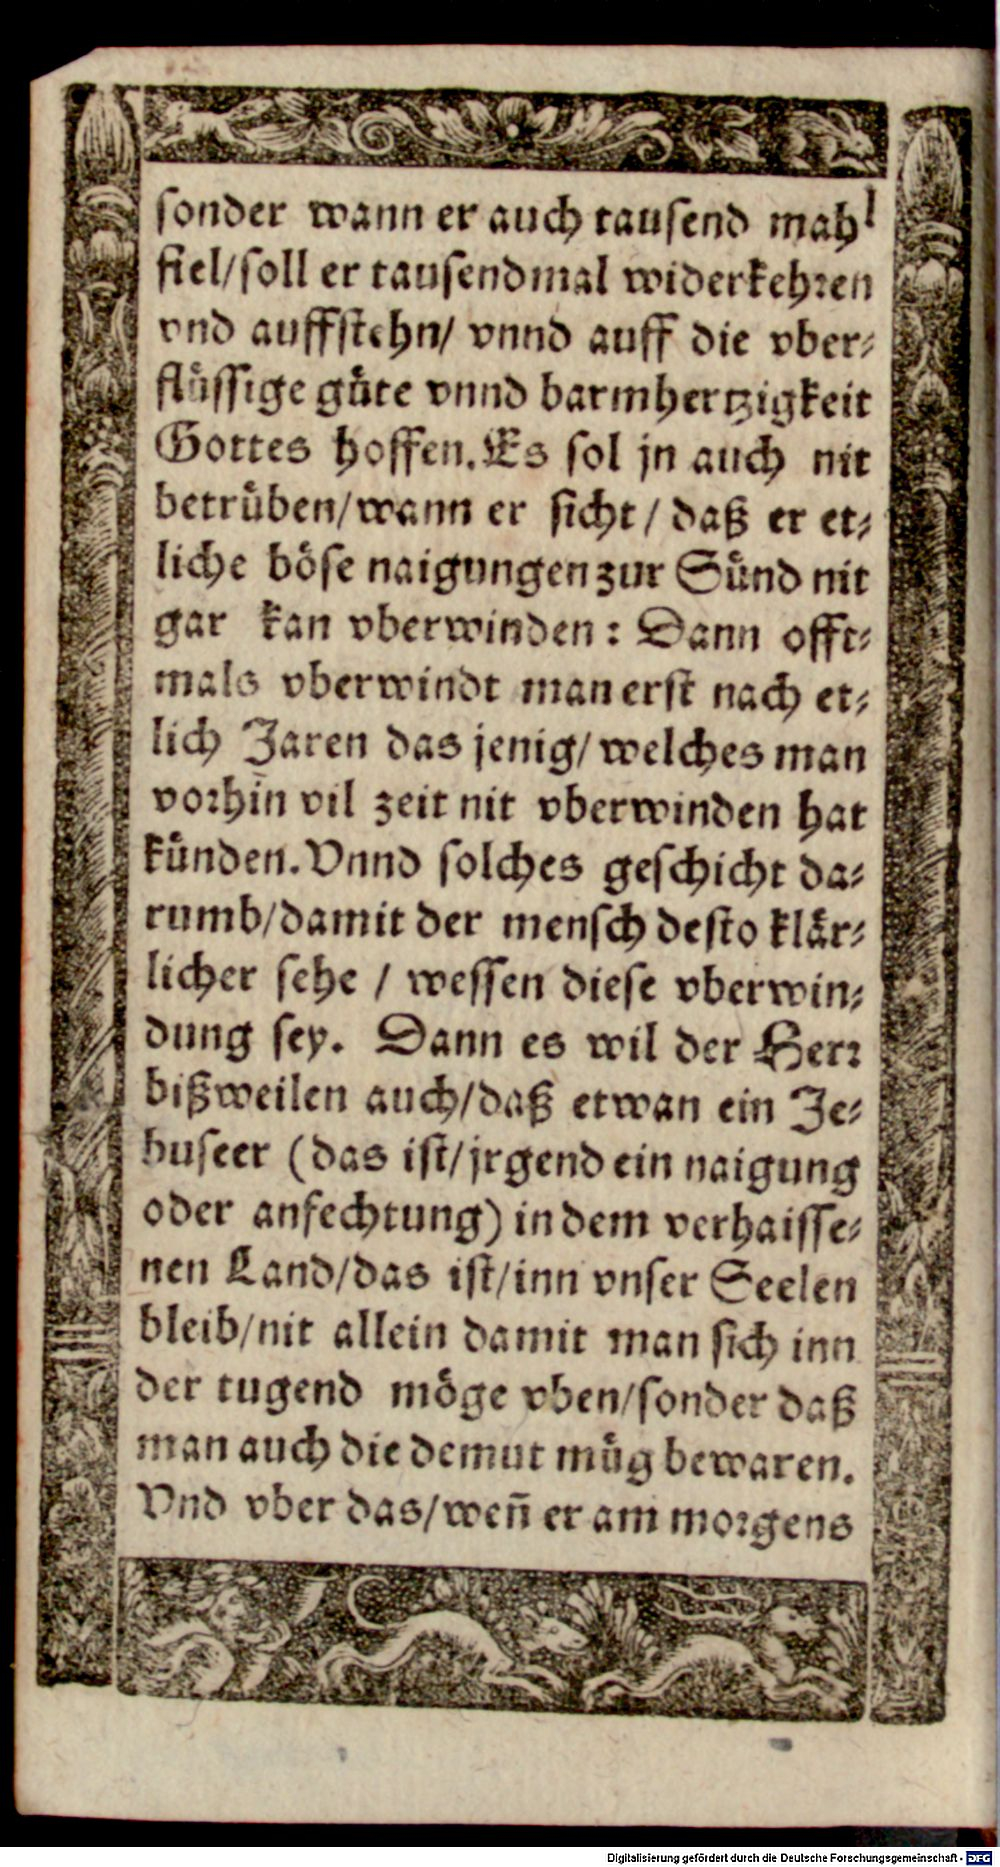 sonder wann er auch tausend mahl
fiel/soll er tausendmal widerkehren
vnd auffstehn/ vnnd auff die vber⸗
flüssige güte vnnd barmhertzigkeit
Gottes hoffen. Es sol jn auch nit
betrüben/wann er sicht / daß er et⸗
liche böse naigungen zur Sünd nit
gar kan vberwinden : Dann offt⸗
mals vberwindt man erst nach et⸗
lich Jaren das jenig/ welches man
vorhin vil zeit nit vberwinden hat
künden. Vnnd solches geschicht da⸗
rumb/damit der mensch desto klär⸗
licher sehe / wessen diese vberwin⸗
dung sey. Dann es wil der Herr
bißweilen auch/daß etwan ein Je⸗
buseer (das ist/jrgend ein naigung
oder anfechtung) in dem verhaisse⸗
nen Land/das ist/inn vnser Seelen
bleib/nit allein damit man sich inn
der tugend möge vben/sonder daß
man auch die demut müg bewaren.
Vnd vber das/weñ er am morgens
Digitalisierung gefördert durch die Deutsche Forschungsgemeinschaft - DFG